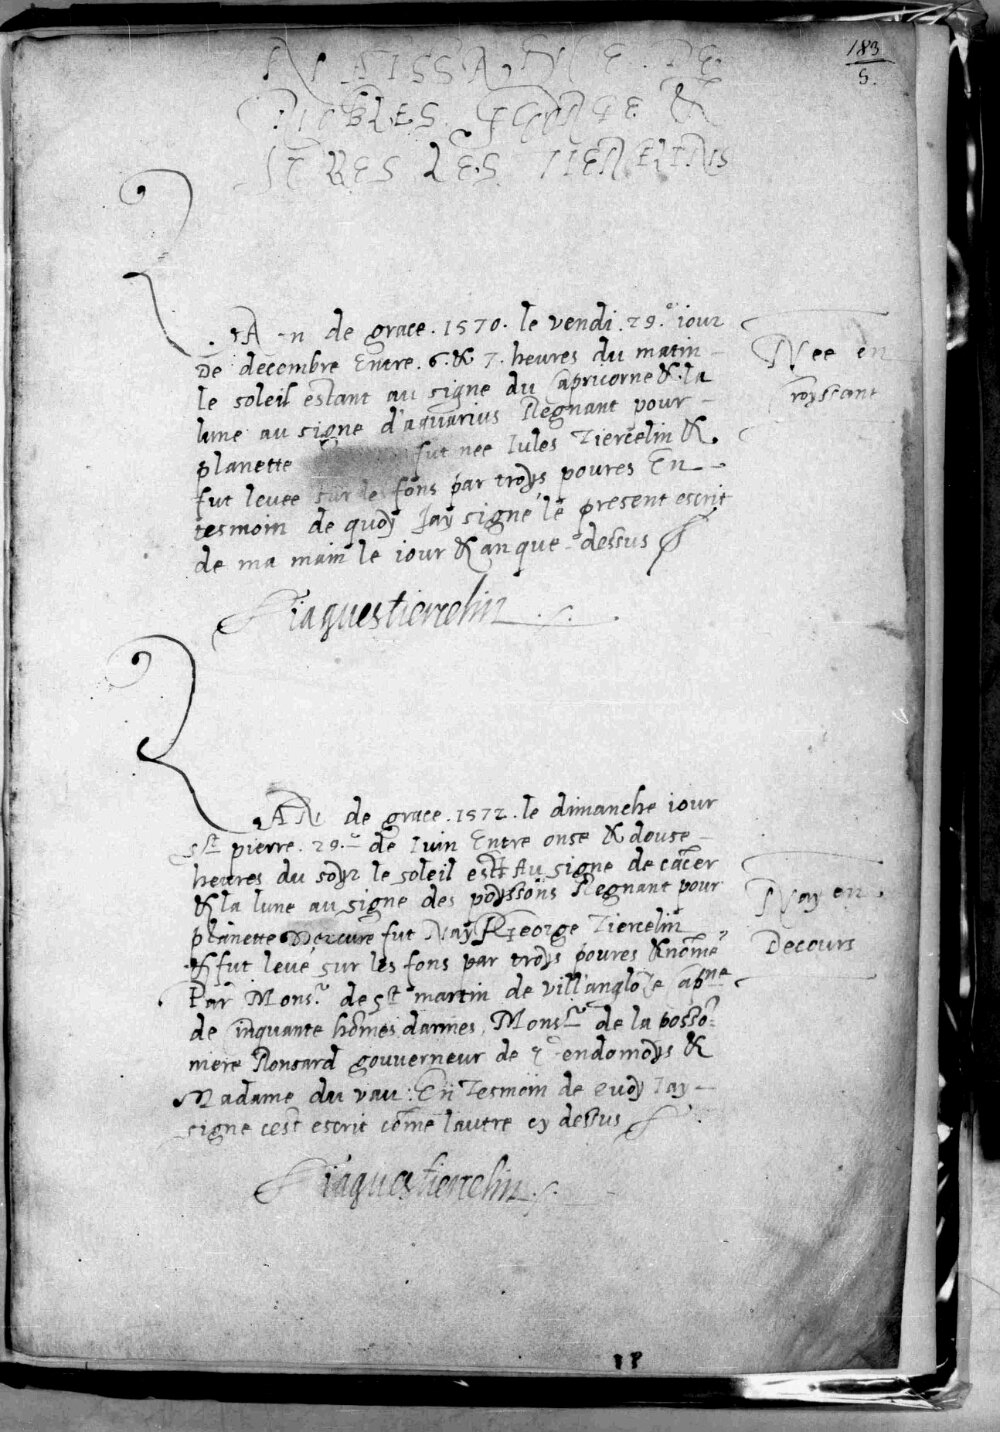 183
5.
NAISSANCE DE
NOBLES GEORGE &
IULES LES TIERCELINS
An de grace .1570. le vendi .29.e iour
De decembre Entre .6. & 7. heures du matin
le soleil estant au signe du Capricorne & la
lune au signe d'aquarius Regnant pour
planette fut nee Iules Tiercelin &
fut levee sur les fons par troys povres En
tesmoin de quoy Jay signé le present escrit
de ma main le iour & an que dessus
Iaques tiercelin
Nee en
Croyssant
AN de grace .1572. le dimanche iour
St pierre .29.e de Iuin Entre onse & douse
heures du soyr le soleil estāt Au signe de cācer
& la lune au signe des poyssons Regnant pour
planette Mercure fut Nay George Tiercelin
& fut levé sur les fons par troys povres & nōmé
Par Monsr de St martin de vill'anglose capne
de cinquante hōmes darmes, Monsr de la posso
niere Ronsard gouverneur de Vendomoys &
Madame du vau. En Tesmoin de quoy Iay
signe cest escrit cōme lautre cy dessus
Iaques tiercelin
Nay en
Decours